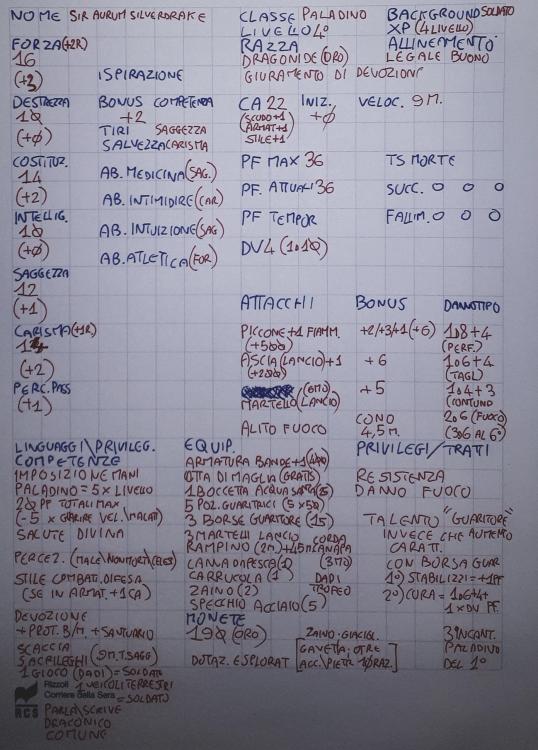 NOME SIR AURUM SILVERDRAKE
CLASSE PALADINO
LIVELLO 4°
BACKGROUND SOLDATO
XP (4 LIVELLO)
FORZA (+2R)
16
(+3)
ISPIRAZIONE
RAZZA
DRAGONIDE (ORO)
GIURAMENTO DI DEVOZIONE
ALLINEAMENTO
LEGALE BUONO
DESTREZZA
10
(+0)
BONUS COMPETENZA
+2
TIRI SAGGEZZA
SALVEZZA CARISMA
CA 22
(SCUDO+1
ARMAT+1
STILE+1)
INIZ.
+0
VELOC. 9M.
COSTITUZ.
14
(+2)
AB. MEDICINA (SAG.)
AB. INTIMIDIRE (CAR)
PF MAX 36
PF. ATTUALI 36
TS MORTE
SUCC. O O O
INTELLIG.
10
(+0)
AB. INTUIZIONE (SAG)
AB. ATLETICA (FOR)
PF TEMPOR
DV 4 (1D10)
FALLIM. O O O
SAGGEZZA
12
(+1)
CARISMA (+1R)
(+2)
PERC. PASS
(+1)
ATTACCHI BONUS DANNO TIPO
PICCONE +1 FIAMM. +2/+3/+1 (+6) 1D8+4
(+500) (PERF.)
ASCIA (LANCIO) +1 +6 1D6+4
(+200) (TAGL)
(6MO) +5 1D4+3
MARTELLO (LANCIO) (CONTUND
ALITO FUOCO CONO 2D6 (FUOCO)
4,5M. (3D6 AL 6°)
LINGUAGGI \ PRIVILEG.
COMPETENZE
IMPOSIZIONE MANI
PALADINO = 5 X LIVELLO
20 PF TOTALI MAX
(-5 X GUARIRE VEL. \ MALAT)
SALUTE DIVINA
PERCEZ. (MALE \ NONMORTI \ CELES)
STILE COMBATT. DIFESA
(SE IN ARMAT. +1 CA)
DEVOZIONE
+ PROT. B/M. + SANTUARIO
SCACCIA
SACRILEGHI (9M. T.SAGG)
1 GIOCO (DADI) = SOLDATO
1 VEICOLI TERRESTRI
= SOLDATO
PARLA \ SCRIVE
DRACONICO
COMUNE
EQUIP.
ARMATURA BANDE +1 (400)
COTTA DI MAGLIA (GRATIS)
1 BOCCETTA ACQUA SANTA (25)
5 POZ. GUARITRICI (5 X 50)
3 BORSE GUARITORE (15)
3 MARTELLI LANCIO
RAMPINO (2M) + 15M CORDA CANAPA
CANNA DA PESCA (1) (3MO)
CARRUCOLA (1) DADI
ZAINO (2) TROFEO
SPECCHIO ACCIAIO (5)
MONETE
190 (ORO)
DOTAZ. ESPLORAT
ZAINO. GIACIGL.
GAVETTA. OTRE
ACC. \ PIETR. 10 RAZ.
PRIVILEGI / TRATI
RESISTENZA
DANNO FUOCO
TALENTO "GUARITORE"
INVECE CHE AUMENTO
CARATT.
CON BORSA GUAR
1°) STABILIZZI = +1PF
2°) CURA = 1D6+4
1 X DV PF.
3 INCANT.
PALADINO
DEL 1°
Rizzoli
Corriere della Sera
RCS